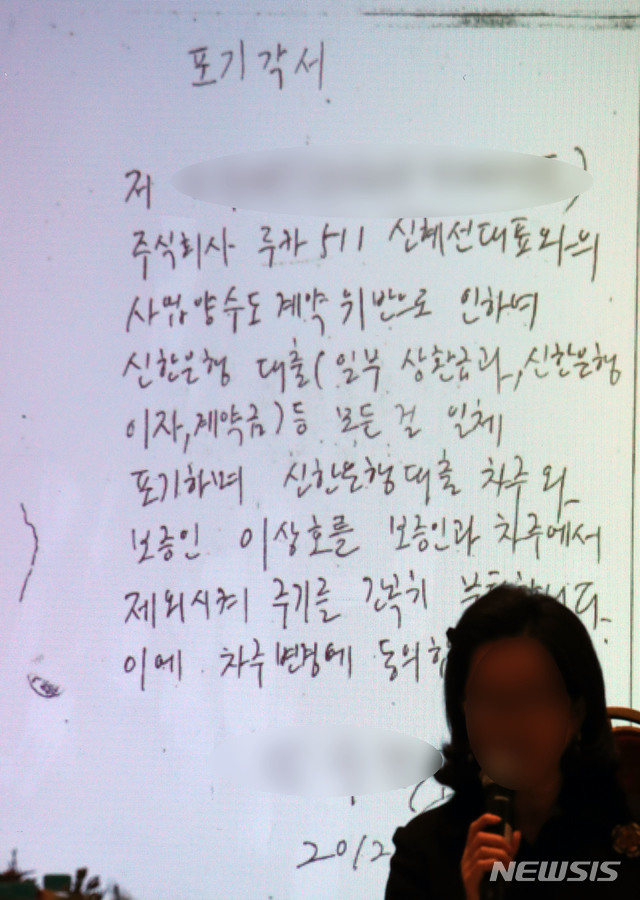 포기각서
저
주식회사 루카511 신혜선대표와의
사업양수도 계약 위반으로 인하여
신한은행 대출(일부 상환금과, 신한은행
이자, 계약금)등 모든 걸 일체
포기하며 신한은행대출 차주와
보증인 이상호를 보증인과 차주에서
제외시켜 주기를 간곡히 부탁합니다.
이에 차주변경에 동의합
2012
NEWSIS